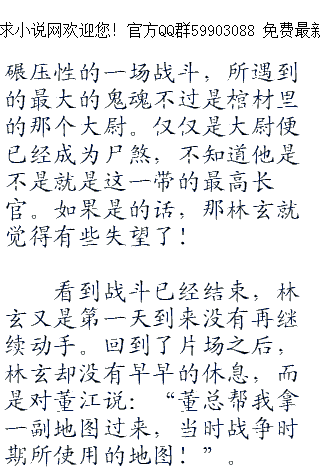 求小说网欢迎您！官方QQ群59903088 免费最新
碾压性的一场战斗，所遇到
的最大的鬼魂不过是棺材里
的那个大尉。仅仅是大尉便
已经成为尸煞，不知道他是
不是就是这一带的最高长
官。如果是的话，那林玄就
觉得有些失望了！
看到战斗已经结束，林
玄又是第一天到来没有再继
续动手。回到了片场之后，
林玄却没有早早的休息，而
是对董江说：“董总帮我拿
一副地图过来，当时战争时
期所使用的地图！”。